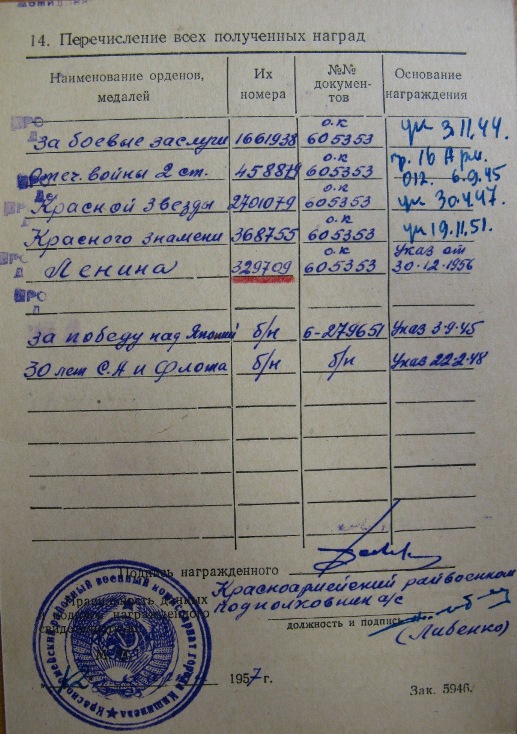 14. Перечисление всех полученных наград
Наименование орденов, медалей
Их номера
№№ докумен-тов
Основание награждения
За боевые заслуги 1661938 о.к 605353 ук 3.11.44.
Отеч. войны 2 ст. 458879 о.к 605353 пр. 16 Арм. 012. 6.9.45
Красной Звезды 2701079 о.к 605353 ук 30.4.47.
Красного знамени 368755 о.к 605353 ук 19.11.51.
Ленина 329709 о.к 605353 Указ от 30.12.1956
За победу над Японией б/н б-279651 Указ 3.9.45
30 лет С.А и Флота б/н б/н Указ 22.2.48
Подпись награжденного
Красноармейский райвоенком
Правильность данных
подполковник а/с
награжденного
должность и подпись
(Либенко)
1957 г.
Зак. 5946.
Красноармейский районный военный комиссариат города Кишинева